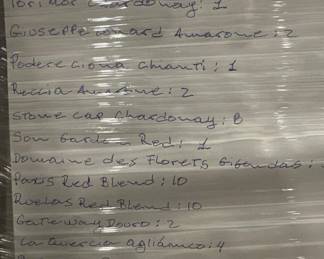 Chardonnay: 1
Giuseppe Lonard Amarone: 2
Podere Ciona Chianti: 1
Reccia Amarone: 2
Stone Cap Chardonnay: 8
Son Garden Red: 1
Domaine des Florets Gigondas:
Paris Red Blend: 10
Ruelas Red Blend: 10
Gateway Douro: 2
La Quercia aglianico: 4